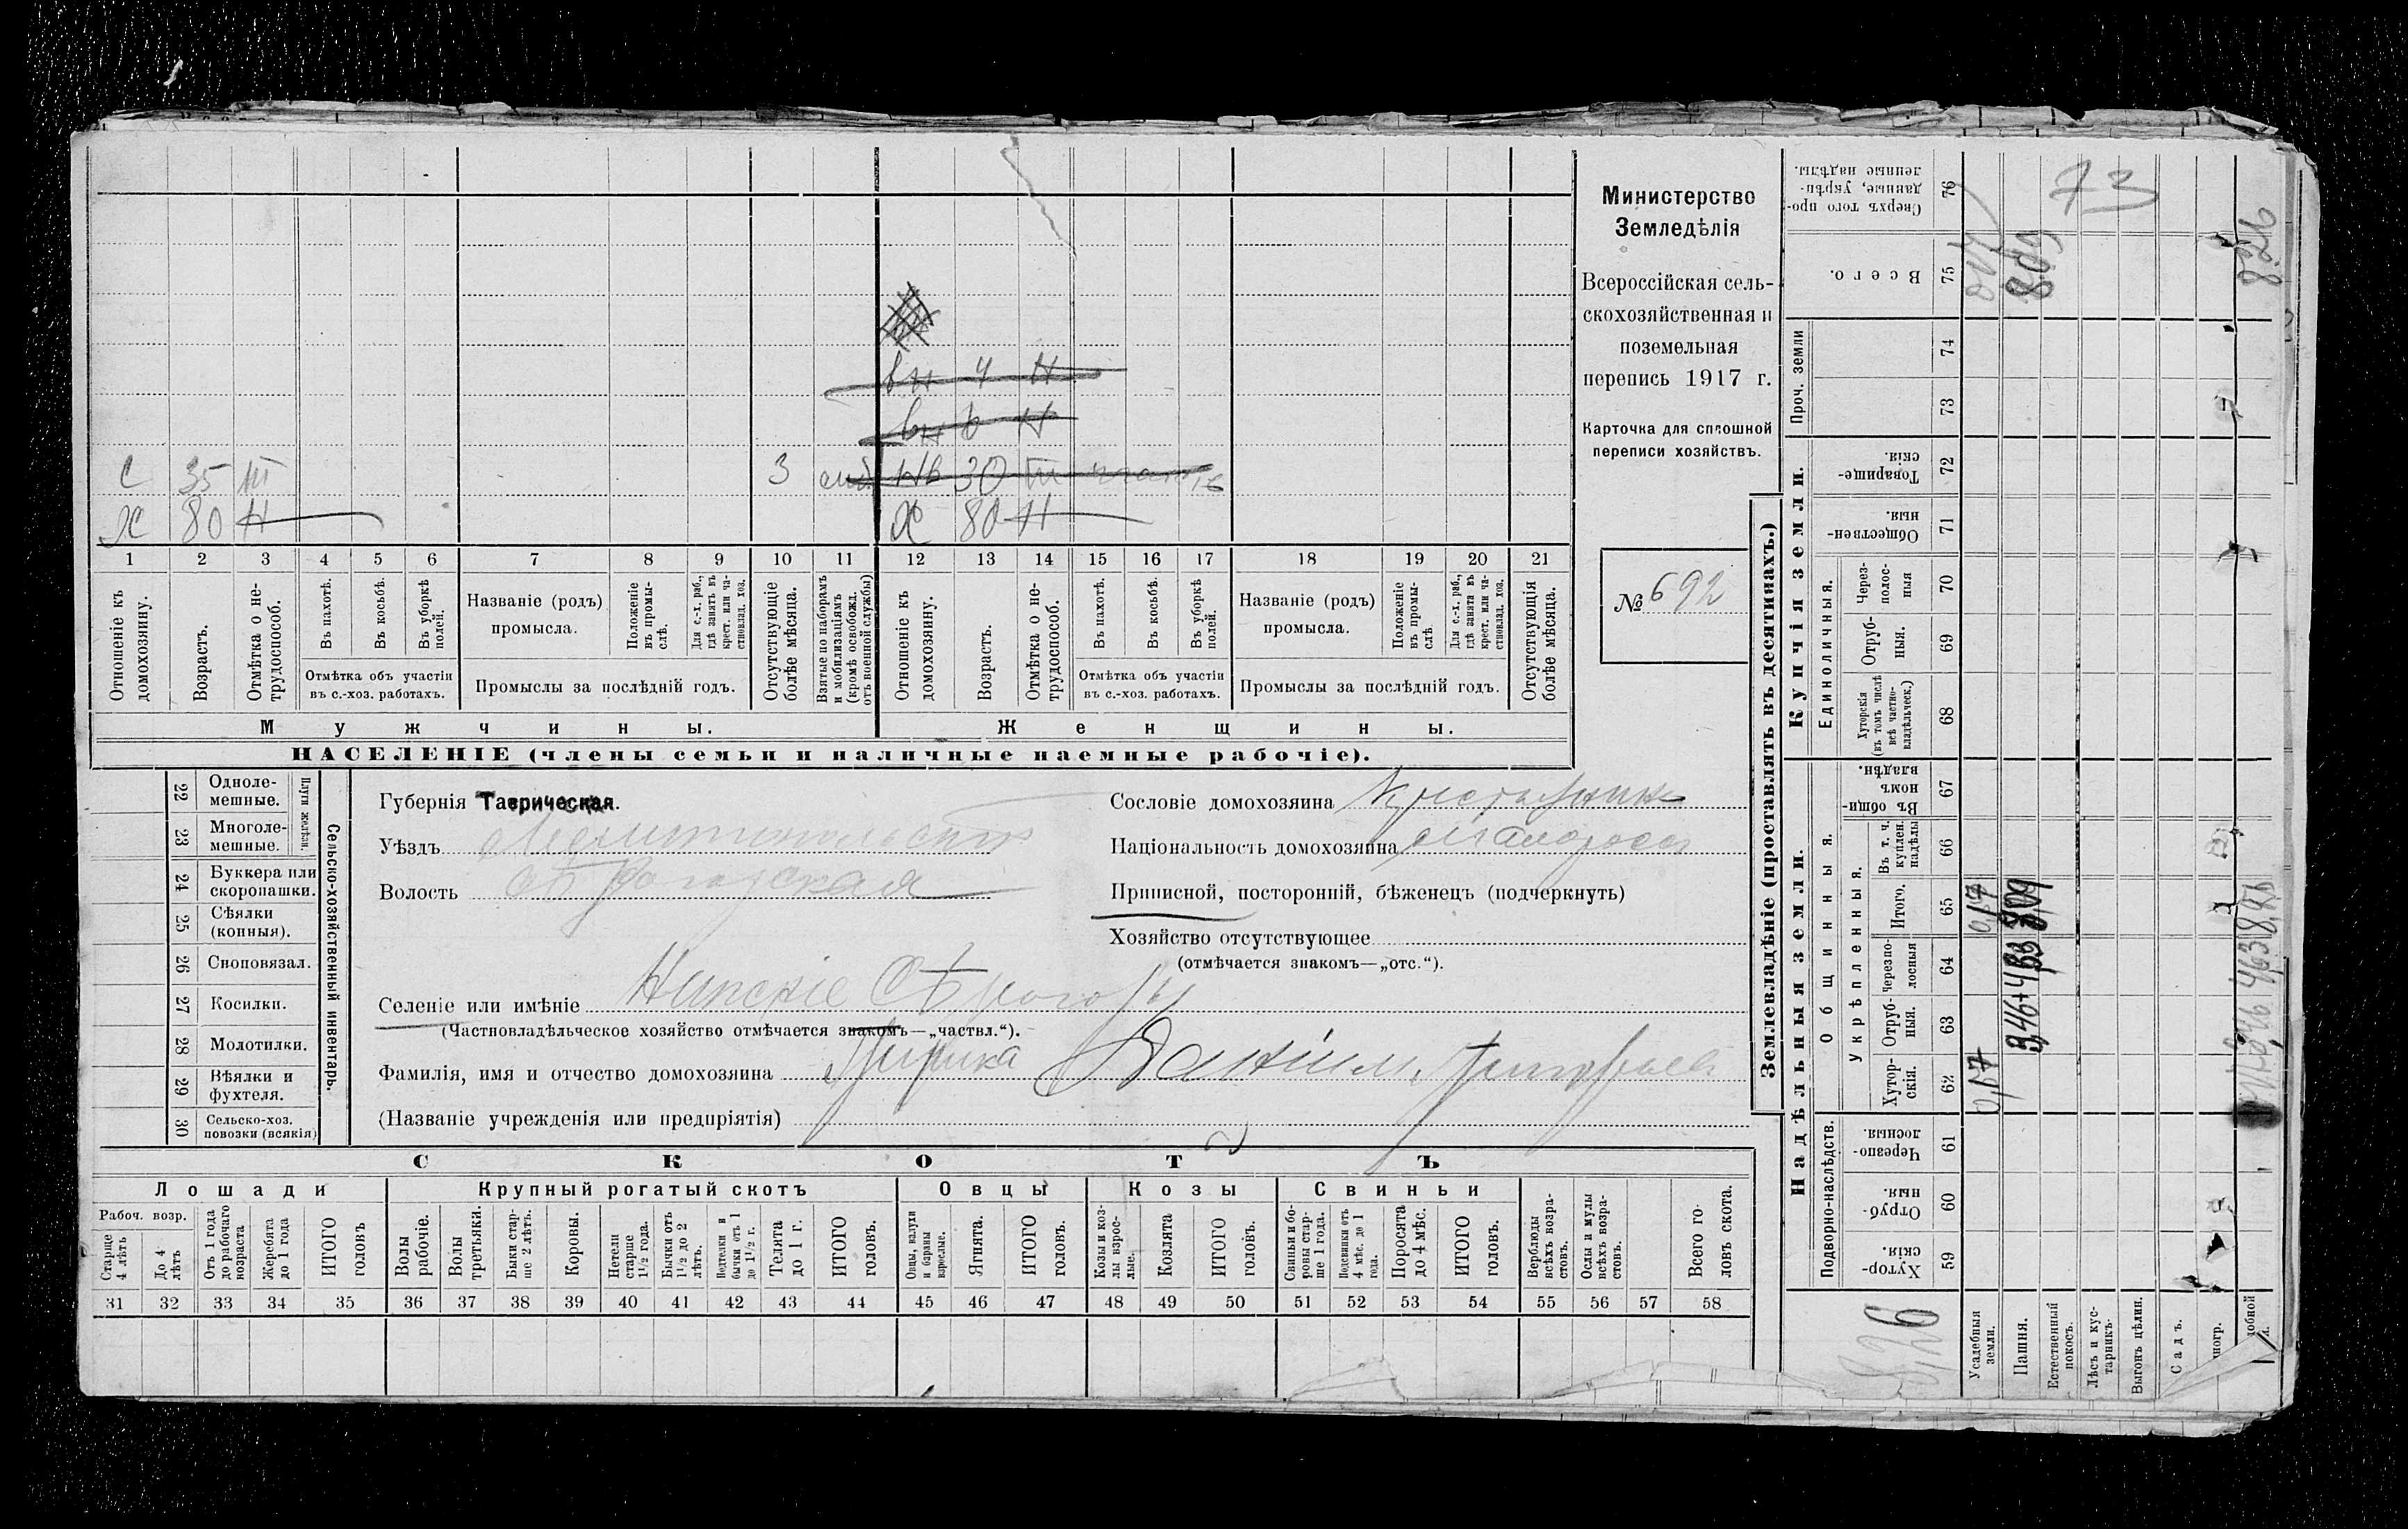 Министерство
Земледѣлія
Всероссійская сель-
скохозяйственная и
поземельная
перепись 1917 г.
Карточка для сплошной
переписи хозяйствъ.
№ 692
С 35 III 3
Х 80 Н
вн 4 Н
вн 6 Н
Нв 30
Х 80 Н
1 2 3 4 5 6 7 8 9 10 11 12 13 14 15 16 17 18 19 20 21
Отношеніе къ домохозяину.
Возрастъ.
Отмѣтка о не-трудоспособ.
Въ пахотѣ.
Въ косьбѣ.
Въ уборкѣ полей.
Отмѣтка объ участіи въ с.-хоз. работахъ.
Названіе (родъ) промысла.
Положеніе въ промы-слѣ.
Для с.-х. раб., гдѣ занятъ въ крест. или ча-стновлад. хоз.
Промыслы за послѣдній годъ.
Отсутствующіе болѣе мѣсяца.
Взятые по наборамъ и мобилизаціямъ (кромѣ освобожд. отъ военной службы)
Отношеніе къ домохозяину.
Возрастъ.
Отмѣтка о не-трудоспособ.
Въ пахотѣ.
Въ косьбѣ.
Въ уборкѣ полей.
Отмѣтка объ участіи въ с.-хоз. работахъ.
Названіе (родъ) промысла.
Положеніе въ промы-слѣ.
Для с.-х. раб., гдѣ занята въ крест. или ча-стновлад. хоз.
Промыслы за послѣдній годъ.
Отсутствующія болѣе мѣсяца.
Мужчины.
Женщины.
НАСЕЛЕНІЕ (члены семьи и наличные наемные рабочіе).
22 Одноле-мешные.
23 Многоле-мешные.
Плуги желѣзн.
24 Буккера или скоропашки.
25 Сѣялки (конныя).
26 Сноповязал.
27 Косилки.
28 Молотилки.
29 Вѣялки и фухтеля.
30 Сельско-хоз. повозки (всякія)
Сельско-хозяйственный инвентарь.
Губернія Таврическая.
Уѣздъ Мелитопольскій
Волость Сѣрогозская
Сословіе домохозяина Крестьянинъ
Національность домохозяина малоросъ
Приписной, посторонній, бѣженецъ (подчеркнуть)
Хозяйство отсутствующее
(отмѣчается знакомъ—„отс.“).
Селеніе или имѣніе Нижніе Сѣрогозы
(Частновладѣльческое хозяйство отмѣчается знакомъ—„частвл.“).
Фамилія, имя и отчество домохозяина Даніил
(Названіе учрежденія или предпріятія)
СКОТЪ
Лошади
Крупный рогатый скотъ
Овцы
Козы
Свиньи
Рабоч. возр.
Старше 4 лѣтъ
До 4 лѣтъ
Отъ 1 года до рабочаго возраста
Жеребята до 1 года
ИТОГО головъ
Волы рабочіе.
Волы третьяки.
Быки стар-ше 2 лѣтъ.
Коровы.
Нетели старше 1½ года.
Бычки отъ 1½ до 2 лѣтъ.
Подтелки и бычки отъ 1 до 1½ г.
Телята до 1 г.
ИТОГО головъ.
Овцы, валухи и бараны взрослые.
Ягнята.
ИТОГО головъ.
Козы и коз-лы взрос-лые.
Козлята
ИТОГО головъ.
Свиньи и бо-ровы стар-ше 1 года.
Подсвинки отъ 4 мѣс. до 1 года.
Поросята до 4 мѣс.
ИТОГО головъ.
Верблюды всѣхъ возра-стовъ.
Ослы и мулы всѣхъ возра-стовъ.
Всего го-ловъ скота.
31 32 33 34 35 36 37 38 39 40 41 42 43 44 45 46 47 48 49 50 51 52 53 54 55 56 57 58
Землевладѣніе (проставлять въ десятинахъ.)
Надѣльныя земли.
Купчія земли.
Проч. земли
Подворно-наслѣдств.
Общинныя.
Укрѣпленныя.
Единоличныя.
59 Хутор-скія.
60 Отруб-ныя.
61 Черезпо-лосныя.
62 Хутор-скія.
63 Отруб-ныя.
64 Черезпо-лосныя
65 Итого.
66 Въ т. ч. куплен. надѣлы
67 Въ общин-номъ владѣн.
68 Хуторскія (въ томъ числѣ всѣ частно-владѣльческ.)
69 Отруб-ныя.
70 Через-полос-ныя
71 Обществен-ныя.
72 Товарище-скія.
73
74
75 Всего.
76 Сверхъ того про-данные, укрѣп-ленные надѣлы.
Усадебныя земли.
Пашня.
Естественный покосъ.
Лѣсъ и кус-тарникъ.
Выгонъ цѣлин.
Садъ.
0,17 0,17
3,46+4,63 8,09 8,09
73
8,26
8,26